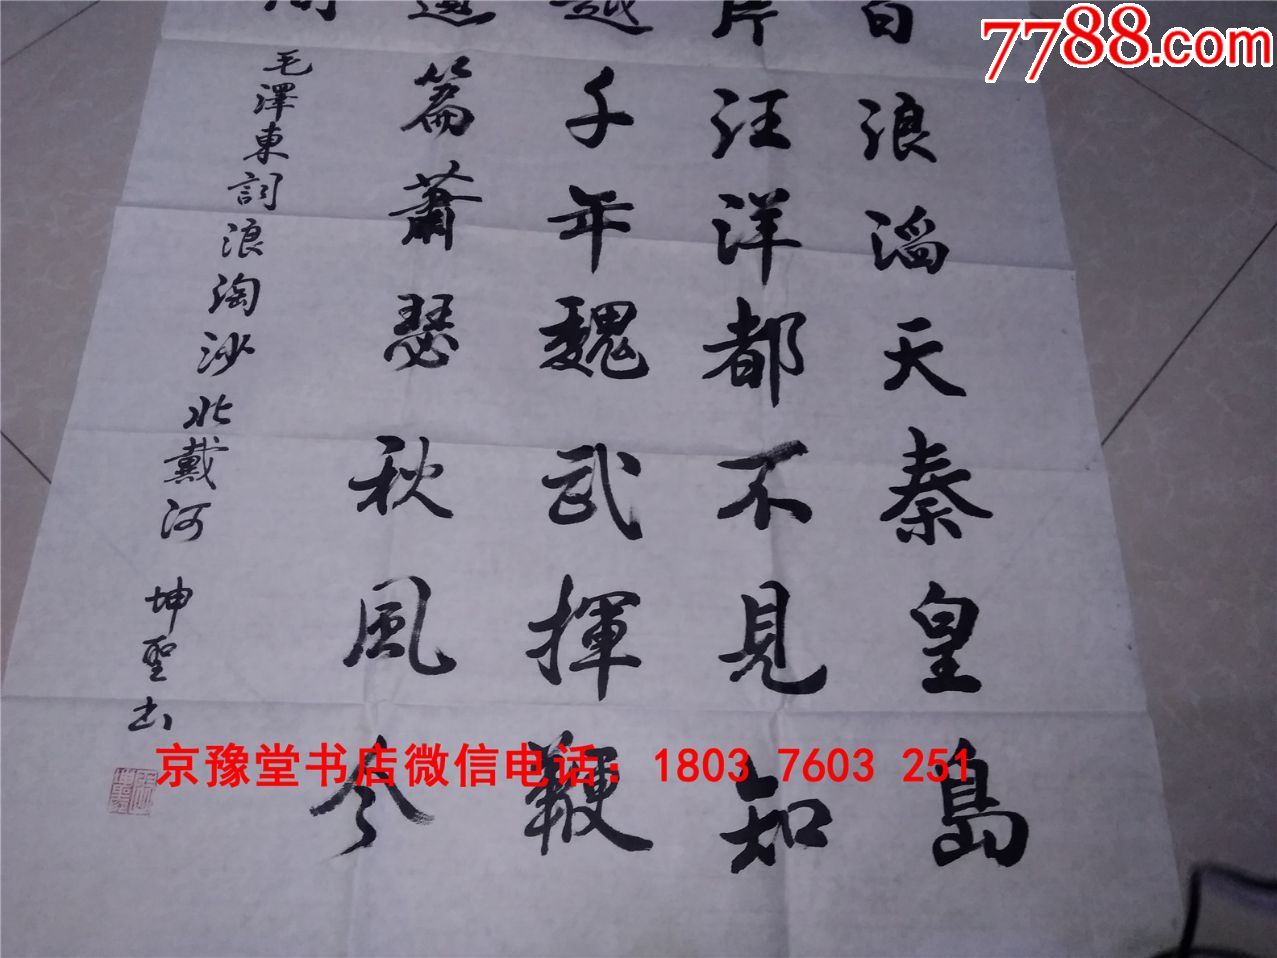 7788.com
白浪滔天秦皇島
片汪洋都不見知
越千年魏武揮鞭
遺篇蕭瑟秋風今
間
毛澤東詞浪淘沙北戴河 坤聖书
京豫堂书店微信电话：1803 7603 251